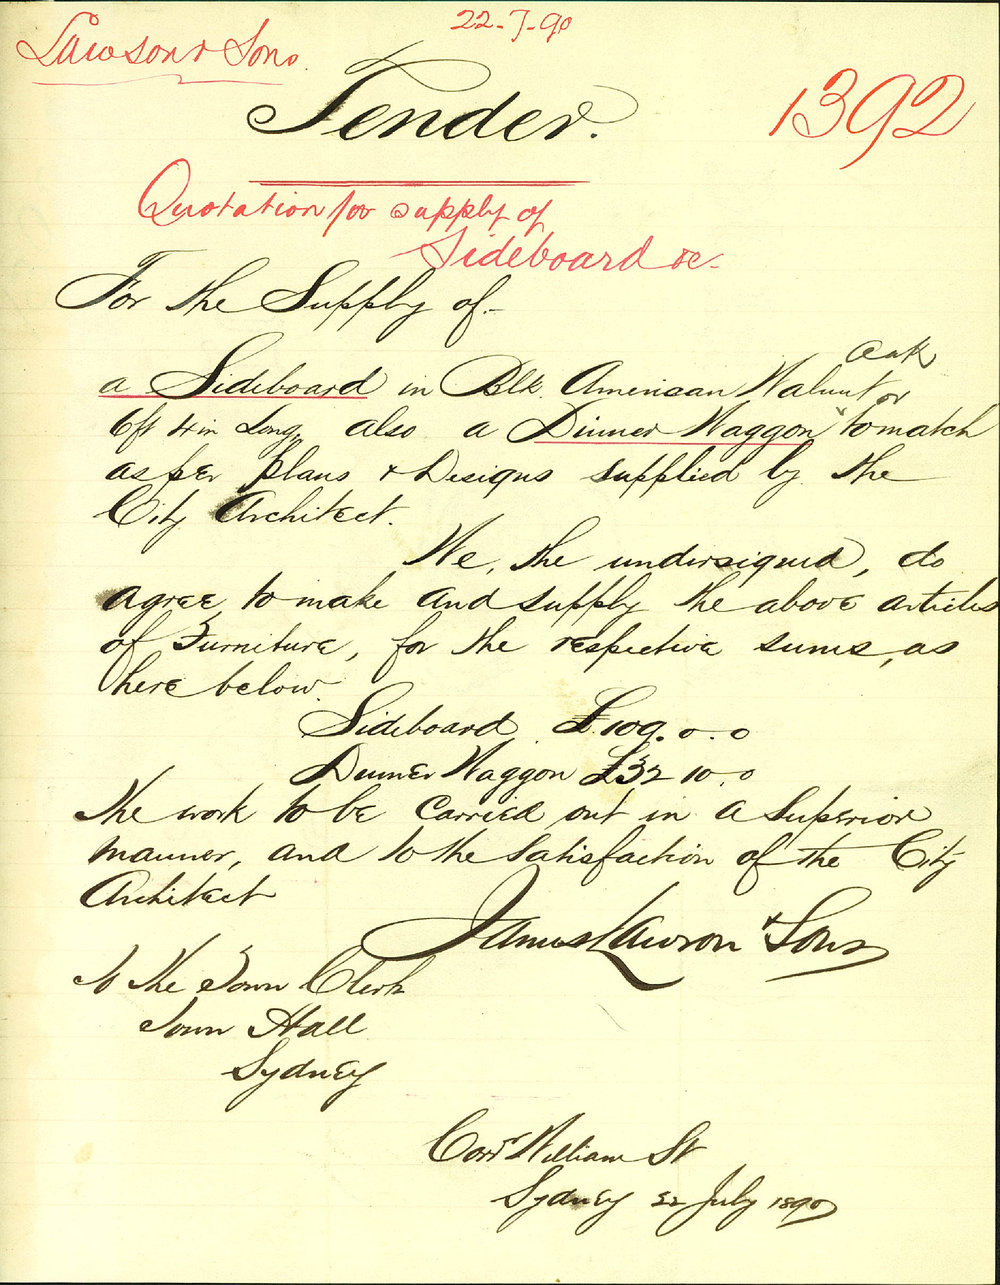 22-7-90
Lawson & Sons.
1392
Tender.
Quotation for supply of
Sideboard &c.
For the Supply of.-
Oak
a Sideboard in Blk. American Walnut or
6ft 4in Long, also a Dinner Waggon to match
as per plans & Designs supplied by the
City Architect.
We, the undersigned, do
agree to make and supply the above articles
of Furniture, for the respective sums, as
here below.
Sideboard. £109.0.0
Dinner Waggon £32 10.0
the work to be carried out in a Superior
manner, and to the Satisfaction of the City
Architect
James Lawson & Sons
to the Town Clerk
Town Hall
Sydney
Corr William St
Sydney 22 July 1890